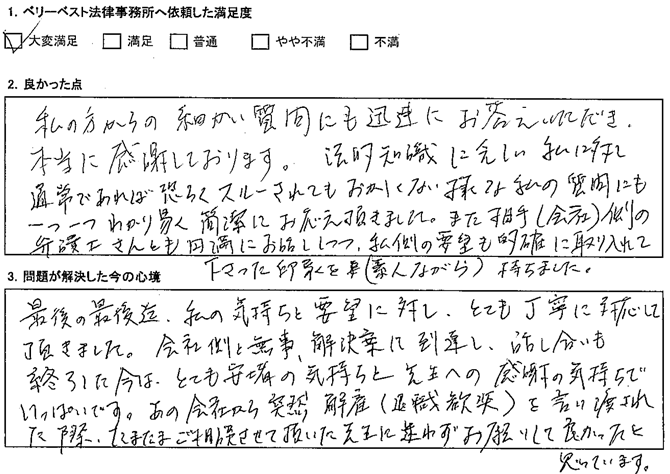 1. ベリーベスト法律事務所へ依頼した満足度
大変満足 満足 普通 やや不満 不満
2. 良かった点
私の方からの細かい質問にも迅速にお答えいただき、
本当に感謝しております。 法的知識に乏しい私に対し
通常であれば恐らくスルーされてもおかしくない様な私の質問にも
一つ一つわかり易く簡潔にお応え頂きました。また相手(会社)側の
弁護士さんとも円満にお話しつつ、私側の要望も的確に取り入れて
下さった印象を(素人ながら)持ちました。
3. 問題が解決した今の心境
最後の最後迄、私の気持ちと要望に対し、とても丁寧に対応して
頂きました。会社側と無事、解決案に到達し、話し合いも
終了した今は、とても安堵の気持ちと先生への感謝の気持ちで
いっぱいです。あの会社から突然解雇(退職歓奨)を言い渡され
た際、たまたまご相談させて頂いた先生に迷わずお願いして良かったと
思っています。